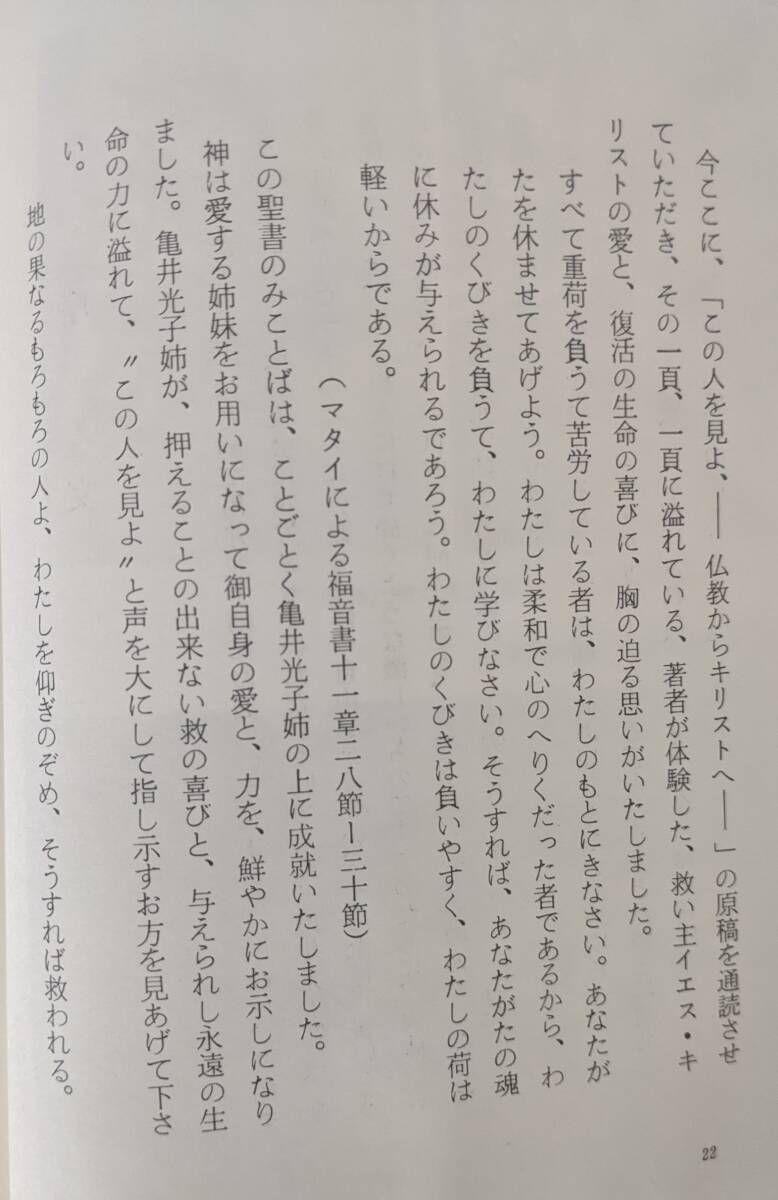 今ここに、「この人を見よ、――仏教からキリストへ――」の原稿を通読させ
ていただき、その一頁、一頁に溢れている、著者が体験した、救い主イエス・キ
リストの愛と、復活の生命の喜びに、胸の迫る思いがいたしました。
すべて重荷を負うて苦労している者は、わたしのもとにきなさい。あなたが
たを休ませてあげよう。わたしは柔和で心のへりくだった者であるから、わ
たしのくびきを負うて、わたしに学びなさい。そうすれば、あなたがたの魂
に休みが与えられるであろう。わたしのくびきは負いやすく、わたしの荷は
軽いからである。
(マタイによる福音書十一章二八節ー三十節)
この聖書のみことばは、ことごとく亀井光子姉の上に成就いたしました。
神は愛する姉妹をお用いになって御自身の愛と、力を、鮮やかにお示しになり
ました。亀井光子姉が、押えることの出来ない救の喜びと、与えられし永遠の生
命の力に溢れて、〃この人を見よ〃と声を大にして指し示すお方を見あげて下さ
い。
地の果なるもろもろの人よ、わたしを仰ぎのぞめ、そうすれば救われる。
22